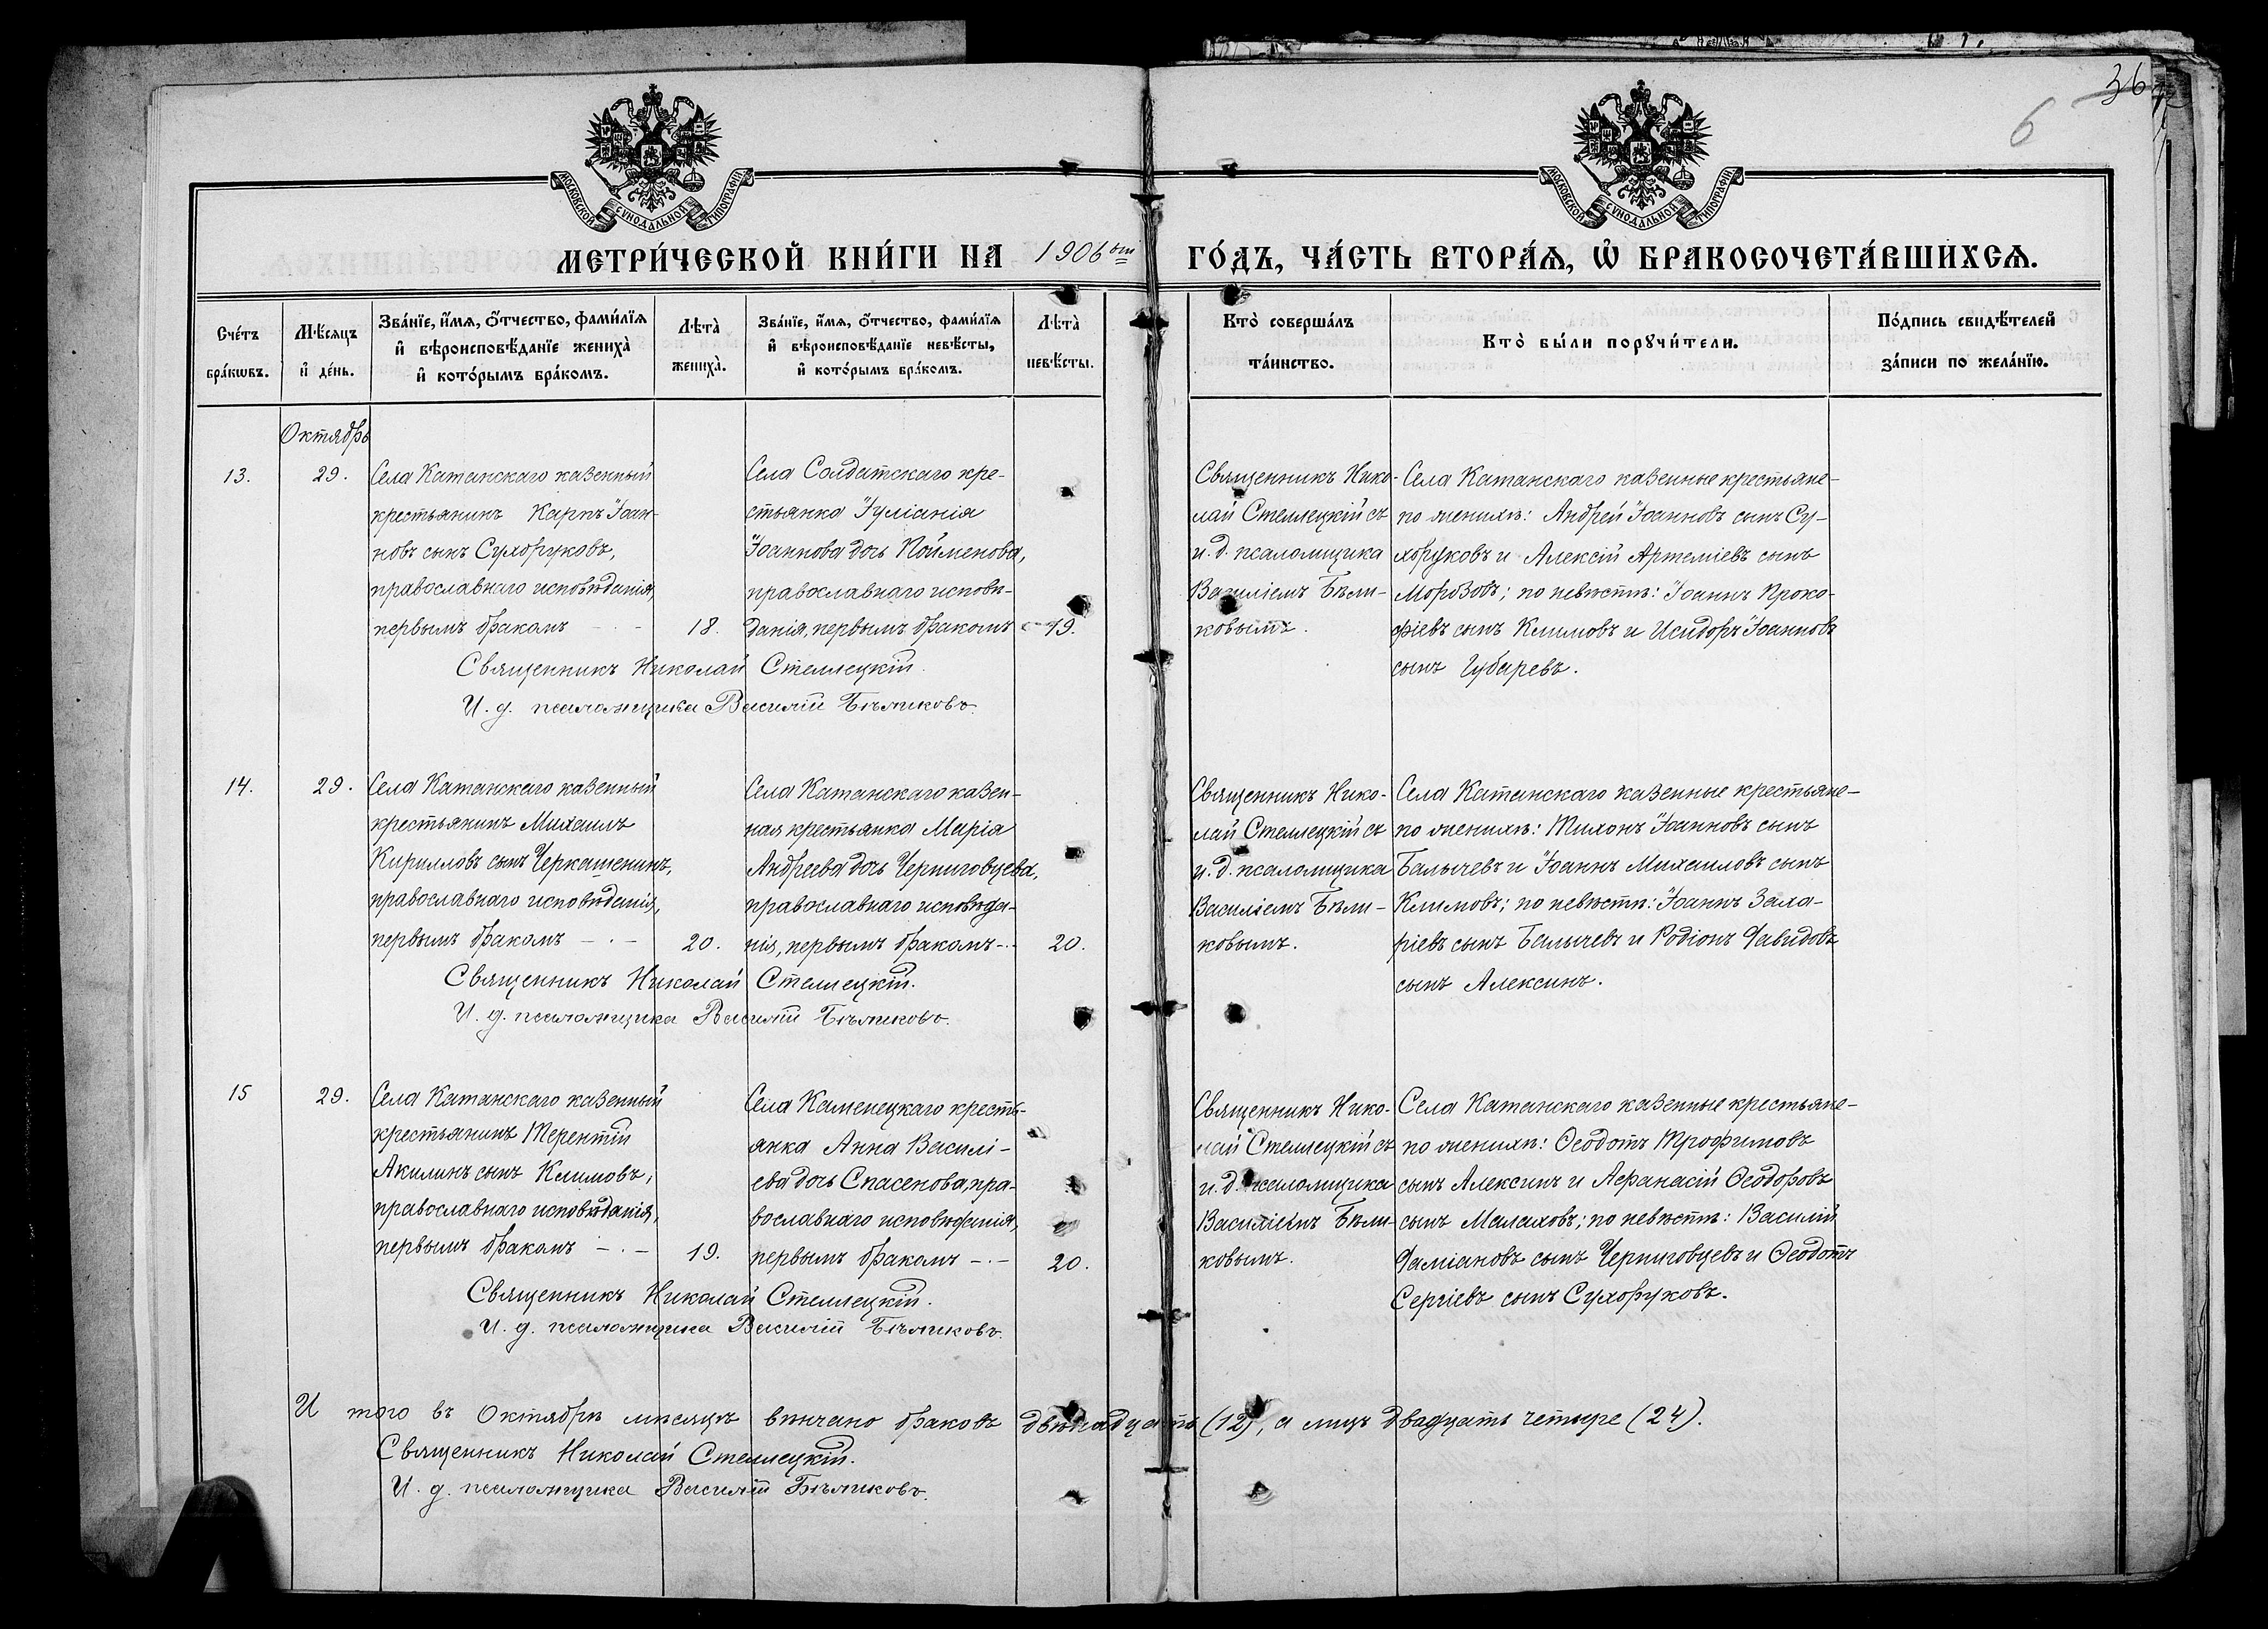 36
6
МОСКОВСКОЙ СѴНОДАЛЬНОЙ ТИПОГРАФІИ
МОСКОВСКОЙ СѴНОДАЛЬНОЙ ТИПОГРАФІИ
МЕТРИ́ЧЕСКОЙ КНИ́ГИ НА 1906 ой ГО́ДЪ, ЧА́СТЬ ВТОРА́Ѧ, Ѽ БРАКОСОЧЕТА́ВШИХСѦ.
Сче́тъ
бра́кѡвъ.
Мѣ́сяцъ
и҆ де́нь.
Зва́нїе, и҆́мѧ, ѻ҆́тчество, фами́лїѧ
и҆ вѣроисповѣ́данїе жениха̀
и҆ кото́рымъ бра́комъ.
Лѣта̀
жениха̀.
Зва́нїе, и҆́мѧ, ѻ҆́тчество, фами́лїѧ
и҆ вѣроисповѣ́данїе невѣ́сты,
и҆ кото́рымъ бра́комъ.
Лѣта̀
невѣ́сты.
Кто̀ соверша́лъ
та́инство.
Кто̀ бы́ли порꙋчи́тели.
По́дпись свидѣ́телей
за́писи по жела́нїю.
Октябрь
13.
29.
Села Катанскаго казенный
крестьянинъ Карпъ Іоан-
новъ сынъ Сухоруковъ,
православнаго исповѣданія,
первымъ бракомъ - -
18.
Села Солдатскаго кре-
стьянка Іуліанія
Іоаннова дочь Пойменова,
православнаго исповѣ-
данія, первымъ бракомъ -
19.
Священникъ Нико-
лай Стеллецкій съ
и. д. псаломщика
Василіемъ Бѣли-
ковымъ.
Села Катанскаго казенные крестьяне-
по женихѣ: Андрей Іоанновъ сынъ Су-
хоруковъ и Алексій Артеміевъ сынъ
Морозовъ; по невѣстѣ: Іоаннъ Проко-
фіевъ сынъ Климовъ и Исидоръ Іоанновъ
сынъ Губаревъ.
Священникъ Николай Стеллецкій.
И. д. псаломщика Василій Бѣликовъ.
14.
29.
Села Катанскаго казенный
крестьянинъ Михаилъ
Кирилловъ сынъ Черкашенинъ,
православнаго исповѣданія,
первымъ бракомъ - . -
20.
Села Катанскаго казен-
ная крестьянка Марія
Андреева дочь Черниговцева,
православнаго исповѣда-
нія, первымъ бракомъ - . -
20.
Священникъ Нико-
лай Стеллецкій съ
и. д. псаломщика
Василіемъ Бѣли-
ковымъ.
Села Катанскаго казенные крестьяне-
по женихѣ: Тихонъ Іоанновъ сынъ
Балычевъ и Іоаннъ Михаиловъ сынъ
Климовъ; по невѣстѣ: Іоаннъ Заха-
ріевъ сынъ Балычевъ и Родіонъ Давидовъ
сынъ Алексинъ.
Священникъ Николай Стеллецкій.
И. д. псаломщика Василій Бѣликовъ.
15
29.
Села Катанскаго казенный
крестьянинъ Терентій
Акилинъ сынъ Климовъ,
православнаго исповѣданія,
первымъ бракомъ - . -
19.
Села Каменецкаго кресть-
янка Анна Василі-
ева дочь Спасенова, пра-
вославнаго исповѣданія,
первымъ бракомъ - . -
20.
Священникъ Нико-
лай Стеллецкій съ
и. д. псаломщика
Василіемъ Бѣли-
ковымъ.
Села Катанскаго казенные крестьяне-
по женихѣ: Ѳеодотъ Трофимовъ
сынъ Алексинъ и Аѳанасій Ѳеодоровъ
сынъ Малаховъ; по невѣстѣ: Василій
Даміановъ сынъ Черниговцевъ и Ѳеодотъ
Сергіевъ сынъ Сухоруковъ.
Священникъ Николай Стеллецкій.
И. д. псаломщика Василій Бѣликовъ.
И того въ Октябрѣ мѣсяцѣ вѣнчано браковъ двѣнадцать (12), а лицъ двадцать четыре (24).
Священникъ Николай Стеллецкій.
И. д. псаломщика Василій Бѣликовъ.